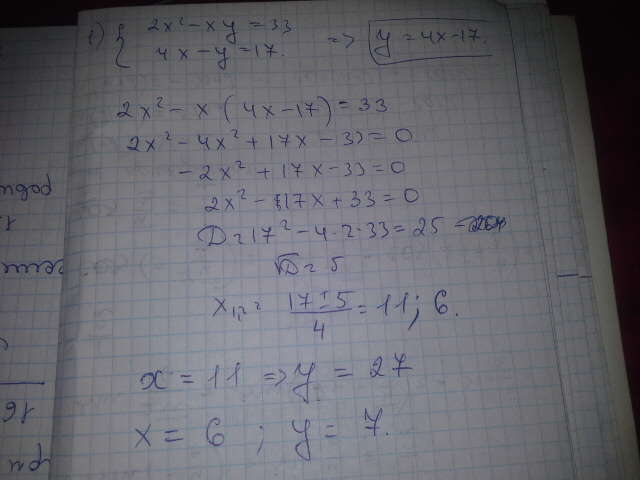 1) { 2x² - xy = 33
4x - y = 17. => y = 4x - 17.
2x² - x (4x - 17) = 33
2x² - 4x² + 17x - 33 = 0
-2x² + 17x - 33 = 0
2x² - 17x + 33 = 0
D = 17² - 4·2·33 = 25
√D = 5
x₁,₂ = (17 ± 5)/4 = 11; 6.
x = 11 => y = 27
x = 6 ; y = 7.
16